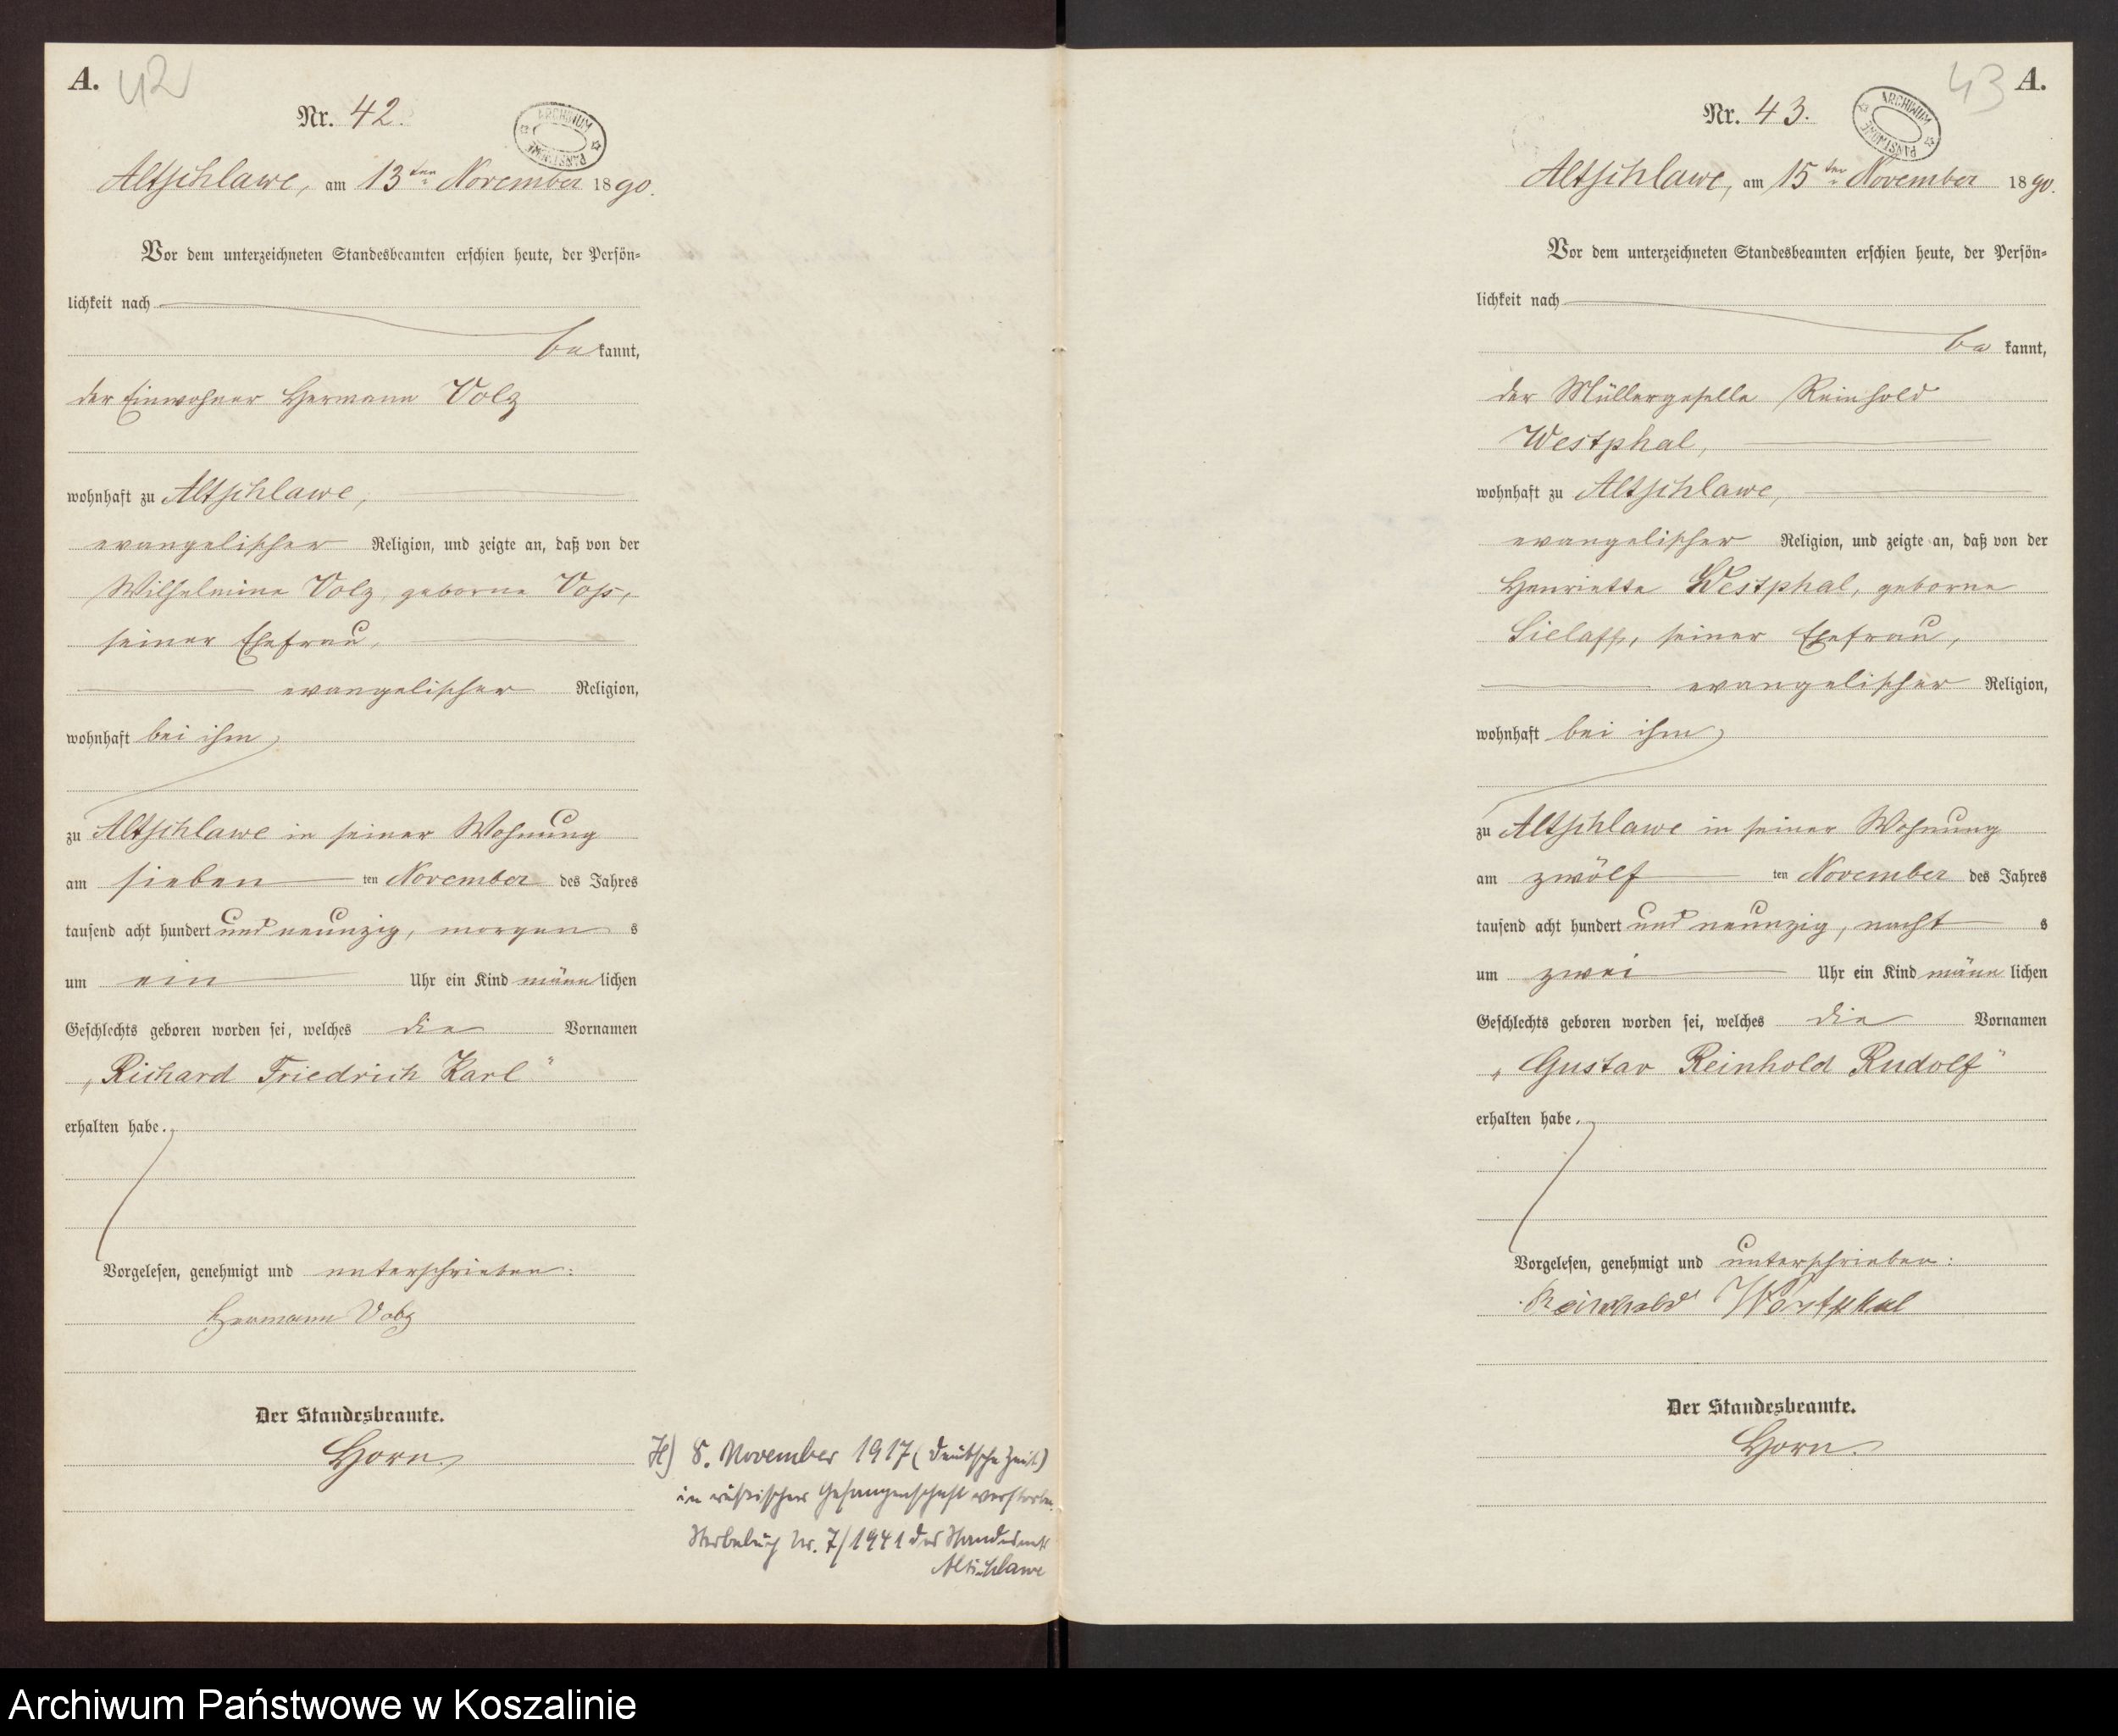 A.
42
Nr. 42.
ARCHIWUM PAŃSTWOWE
Altschlawe, am 13ten November 1890.
Vor dem unterzeichneten Standesbeamten erschien heute, der Persön-
lichkeit nach
bekannt,
der Einwohner Hermann Volz
wohnhaft zu Altschlawe,
evangelischer Religion, und zeigte an, daß von der
Wilhelmine Volz, geborne Voß,
seiner Ehefrau,
evangelischer Religion,
wohnhaft bei ihm
zu Altschlawe in seiner Wohnung
am sieben ten November des Jahres
tausend acht hundert und neunzig, morgens
um ein Uhr ein Kind männlichen
Geschlechts geboren worden sei, welches die Vornamen
„Richard Friedrich Karl"
erhalten habe.
Vorgelesen, genehmigt und unterschrieben:
Hermann Volz
Der Standesbeamte.
Horn.
8. November 1917 (deutsche Zeit)
in russischer Gefangenschaft verstorben.
Sterbebuch Nr. 7/1941 des Standesamts
Altschlawe
43
A.
Nr. 43.
ARCHIWUM PAŃSTWOWE
Altschlawe, am 15ten November 1890.
Vor dem unterzeichneten Standesbeamten erschien heute, der Persön-
lichkeit nach
bekannt,
der Müllergeselle Reinhold
Westphal,
wohnhaft zu Altschlawe,
evangelischer Religion, und zeigte an, daß von der
Henriette Westphal, geborne
Sielaff, seiner Ehefrau,
evangelischer Religion,
wohnhaft bei ihm
zu Altschlawe in seiner Wohnung
am zwölf ten November des Jahres
tausend acht hundert und neunzig, nachts
um zwei Uhr ein Kind männlichen
Geschlechts geboren worden sei, welches die Vornamen
„Gustav Reinhold Rudolf"
erhalten habe.
Vorgelesen, genehmigt und unterschrieben:
Reinhold Westphal
Der Standesbeamte.
Horn.
Archiwum Państwowe w Koszalinie